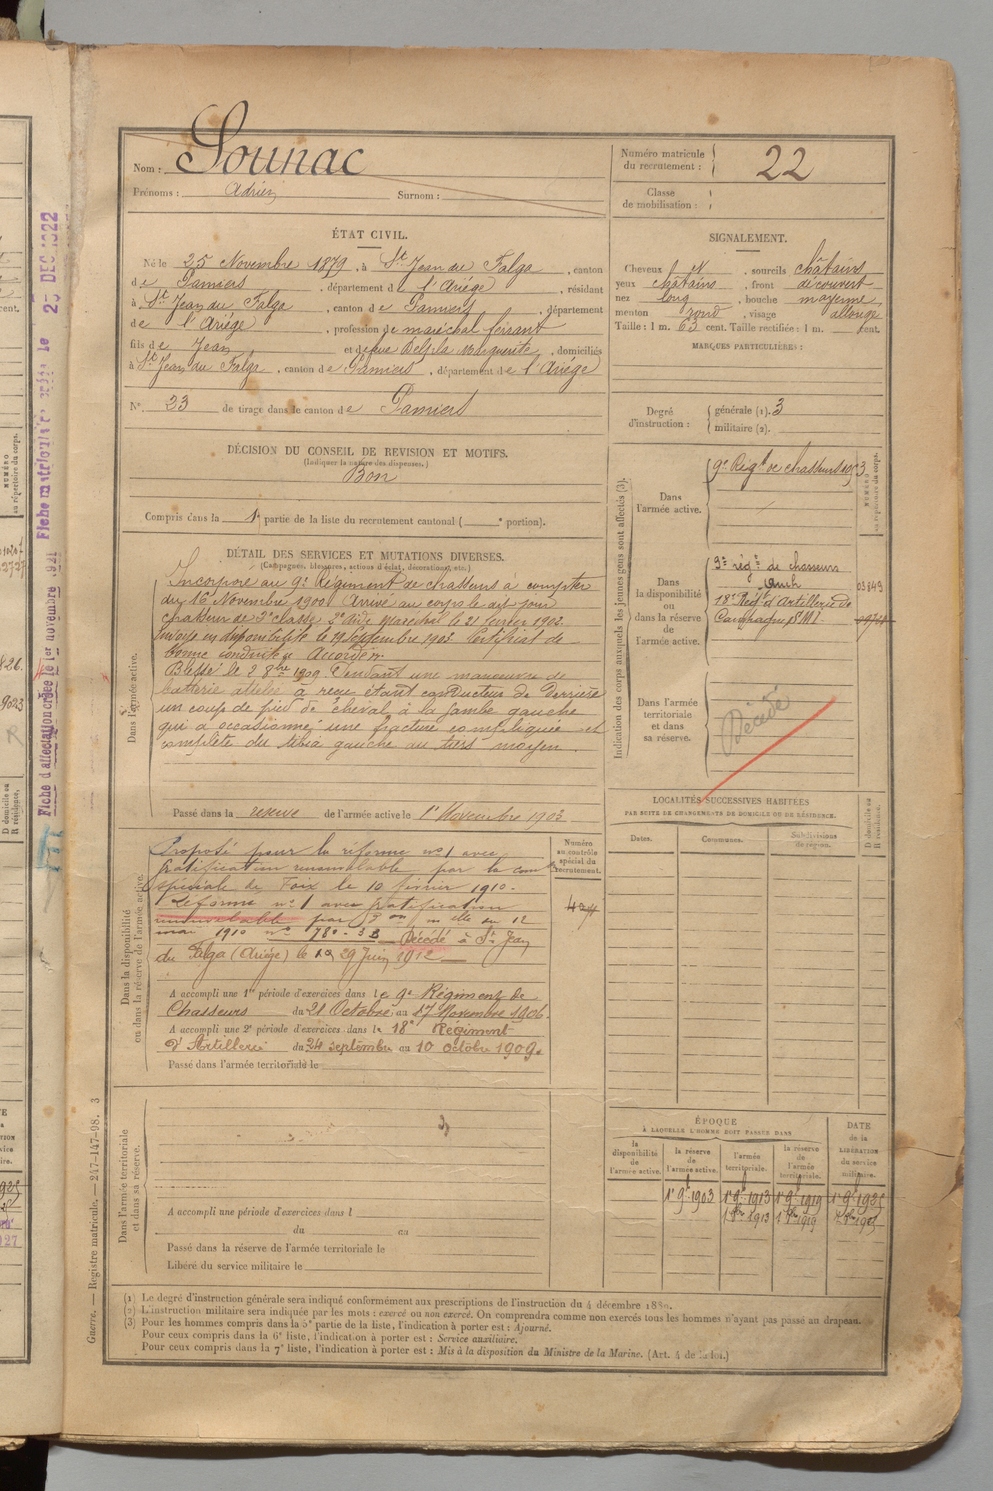 Nom : Sounac
Prénoms : Adrien Surnom :
Numéro matricule du recrutement : 22
Classe de mobilisation :
ÉTAT CIVIL.
Né le 25 Novembre 1879, à St Jean du Falga, canton
de Pamiers, département de l'Ariège, résidant
à St Jean du Falga, canton de Pamiers, département
de l'Ariège, profession de maréchal ferrant
fils de Jean et de feue Delpla Marguerite, domiciliés
à St Jean du Falga, canton de Pamiers, département de l'Ariège
N° 23 de tirage dans le canton de Pamiers
SIGNALEMENT.
Cheveux , sourcils châtains
yeux châtains, front découvert
nez long, bouche moyenne,
menton rond, visage allongé
Taille : 1 m. 63 cent. Taille rectifiée : 1 m. cent.
MARQUES PARTICULIÈRES :
Degré d'instruction : générale (1). 3
militaire (2).
DÉCISION DU CONSEIL DE REVISION ET MOTIFS.
(Indiquer la nature des dispenses.)
Bon
Compris dans la 1e partie de la liste du recrutement cantonal ( e portion).
DÉTAIL DES SERVICES ET MUTATIONS DIVERSES.
(Campagnes, blessures, actions d'éclat, décorations, etc.)
Dans l'armée active.
Incorporé au 9e Régiment de chasseurs à compter
du 16 Novembre 1900 Arrivé au corps le dit jour
chasseur de 2e classe 2e aide Maréchal le 21 février 1902.
Envoyé en disponibilité le 19 Septembre 1903 Certificat de
bonne conduite Accordé.
Blessé le 2 8bre 1909 Pendant une manœuvre de
batterie attelée a reçu étant conducteur de Derrière
un coup de pied de cheval à la jambe gauche
qui a occasionné une fracture compliquée et
complète du tibia gauche au tiers moyen.
Passé dans la reserve de l'armée active le 1er Novembre 1903
Indication des corps auxquels les jeunes gens sont affectés (3).
NUMÉRO au répertoire du corps.
Dans l'armée active.
9e Régt de chasseurs
Dans la disponibilité ou dans la réserve de l'armée active.
9e régt de chasseurs
Auch
18e Régt d'Artillerie de
Campagne
Dans l'armée territoriale et dans sa réserve.
Décédé
LOCALITÉS SUCCESSIVES HABITÉES
PAR SUITE DE CHANGEMENTS DE DOMICILE OU DE RÉSIDENCE.
Dates. Communes. Subdivisions de région. D domicile ou R résidence.
Dans la disponibilité ou dans la réserve de l'armée active.
Numéro au contrôle spécial du recrutement.
Proposé pour la réforme n° 1 avec
gratification renouvelable par la comon
spéciale de Foix le 10 février 1910.
Réformé n° 1 avec gratification
renouvelable par Don mlle du 12
mai 1910 n° 780-3B Décédé à St Jean
du Falga (Ariège) le 29 Juin 1912
A accompli une 1re période d'exercices dans le 9e Régiment de
Chasseurs du 21 Octobre au 17 Novembre 1906.
A accompli une 2e période d'exercices dans le 18e Régiment
d'Artillerie du 24 septembre au 10 octobre 1909.
Passé dans l'armée territoriale le
Dans l'armée territoriale et dans sa réserve.
A accompli une période d'exercices dans l
du au
Passé dans la réserve de l'armée territoriale le
Libéré du service militaire le
ÉPOQUE
À LAQUELLE L'HOMME DOIT PASSER DANS
la disponibilité de l'armée active. la réserve de l'armée active. l'armée territoriale. la réserve de l'armée territoriale. DATE de la LIBÉRATION du service militaire.
1er 9b 1903 1er 9b 1913 1er 9b 1919 1er 9b 1925
(1) Le degré d'instruction générale sera indiqué conformément aux prescriptions de l'instruction du 4 décembre 1889.
(2) L'instruction militaire sera indiquée par les mots : exercé ou non exercé. On comprendra comme non exercés tous les hommes n'ayant pas passé au drapeau.
(3) Pour les hommes compris dans la 5e partie de la liste, l'indication à porter est : Ajourné.
Pour ceux compris dans la 6e liste, l'indication à porter est : Service auxiliaire.
Pour ceux compris dans la 7e liste, l'indication à porter est : Mis à la disposition du Ministre de la Marine. (Art. 4 de la loi.)
Guerre. — Registre matricule. — 247-147-98. 3